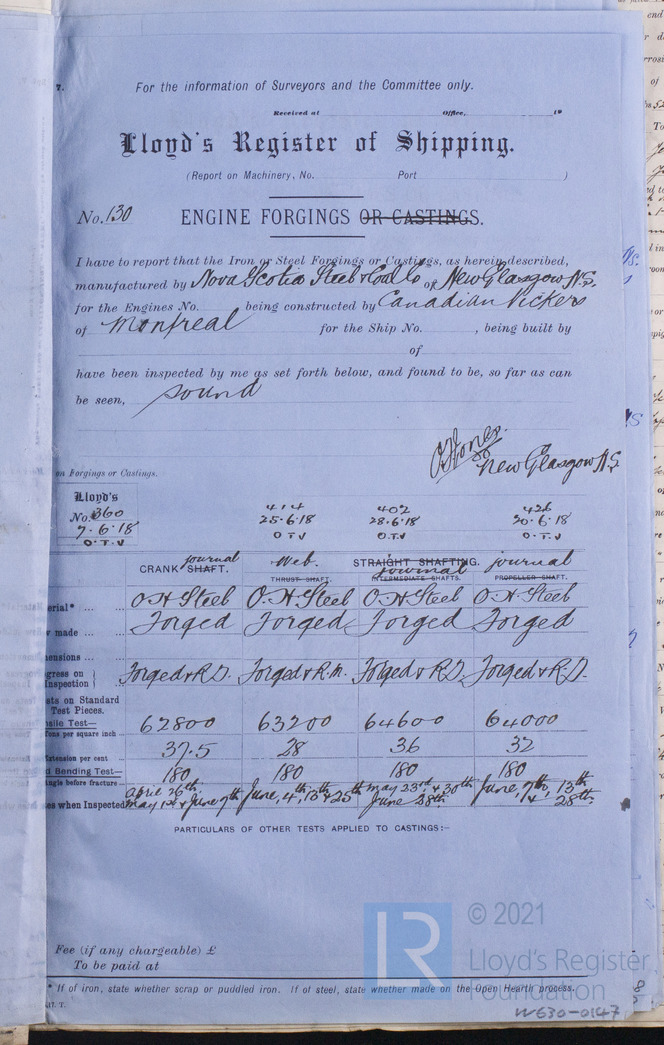 7.
For the information of Surveyors and the Committee only.
Received at Office, 19
Lloyd's Register of Shipping.
(Report on Machinery, No. Port )
No. 130 ENGINE FORGINGS OR CASTINGS.
I have to report that the Iron or Steel Forgings or Castings, as herein described,
manufactured by Nova Scotia Steel & Coal Co of New Glasgow N.S.
for the Engines No. being constructed by Canadian Vickers
of Montreal for the Ship No. , being built by
of
have been inspected by me as set forth below, and found to be, so far as can
be seen, sound
New Glasgow N.S.
on Forgings or Castings.
Lloyd's
No. 360 414 402 426
7-6-18 25-6-18 28-6-18 20-6-18
O.T.V O.T.V O.T.V O.T.V
journal Web. journal journal
CRANK SHAFT. THRUST SHAFT. STRAIGHT SHAFTING. INTERMEDIATE SHAFTS. PROPELLER SHAFT.
erial* ... O.H Steel O.H. Steel O.H Steel O.H Steel
made ... Forged Forged Forged Forged
ensions ...
gress on Inspection Forged & R.D. Forged & R.M. Forged & R.D. Forged & R.D.
sts on Standard
Test Pieces.
sile Test—
Tons per square inch 62800 63200 64600 64000
Extension per cent 37.5 28 36 32
d Bending Test—
Angle before fracture 180 180 180 180
es when Inspected April 26th, May 1st & June 7th June, 4, 13th & 25th May 23rd, & 30th June 28th June, 7th, 13th & 28th
PARTICULARS OF OTHER TESTS APPLIED TO CASTINGS:—
Fee (if any chargeable) £
To be paid at
* If of iron, state whether scrap or puddled iron. If of steel, state whether made on the Open Hearth process.
LR © 2021
Lloyd's Register
Foundation
W630-0147